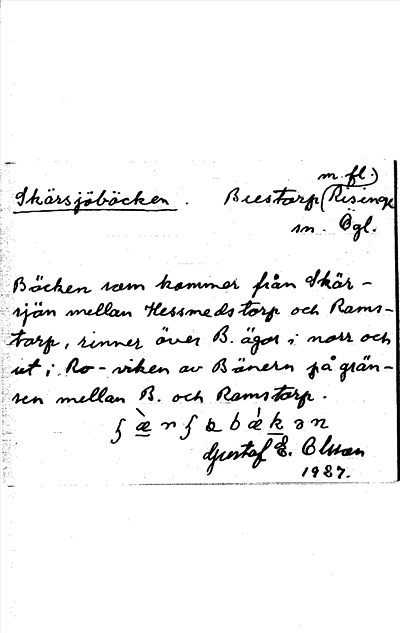 m. fl.)
Skärsjöbäcken. Biestorp (Risinge
sn. Ögl.
Bäcken som kommer från Skär-
sjön mellan Hessmedstorp och Rams-
torp, rinner över B. ägor i norr och
ut i Ro-viken av Bönern på grän-
sen mellan B. och Ramstorp.
Gustaf E. Olsson
1927.